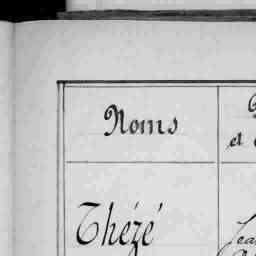 Noms
et
Thézé
Jea